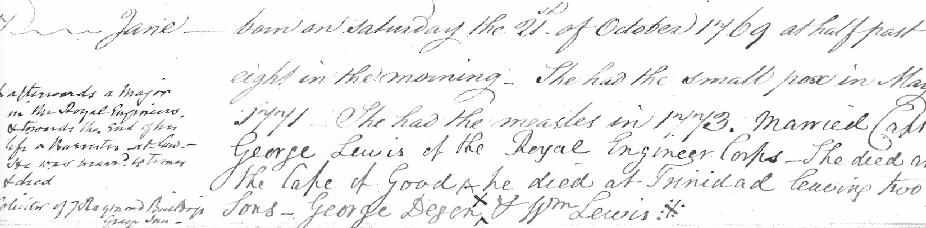 7 Jane - born on Saturday the 21st. of October 1769 at half past
eight in the morning - She had the small pox in May
1771 - She had the measles in 1773. Married Capt
George Lewis of the Royal Engineer Corps - She died at
the Cape of Good & he died at Trinidad leaving two
Sons - George Degen x & Wm Lewis :x:
afterwards a Major
in the Royal Engineers
& towards the End of his
life a Barrister at Law -
He was
& died
of 7 Raymond Buildings
Grays Inn -